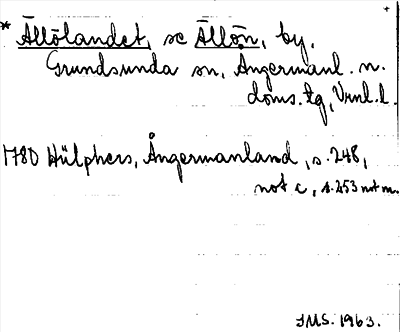 * Ällölandet, se Ällön, by,
Grundsunda sn, Ångermanl. n.
doms. tg, Vrnl. l.
1780 Hülphers, Ångermanland, s. 248,
not c, s. 253 not m.
JMS. 1963.